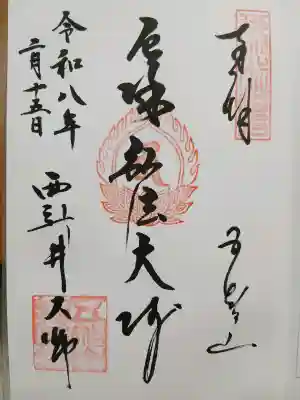 奉拝
五智山
厄除 弘法大師
令和八年
二月十五日
西新井大師